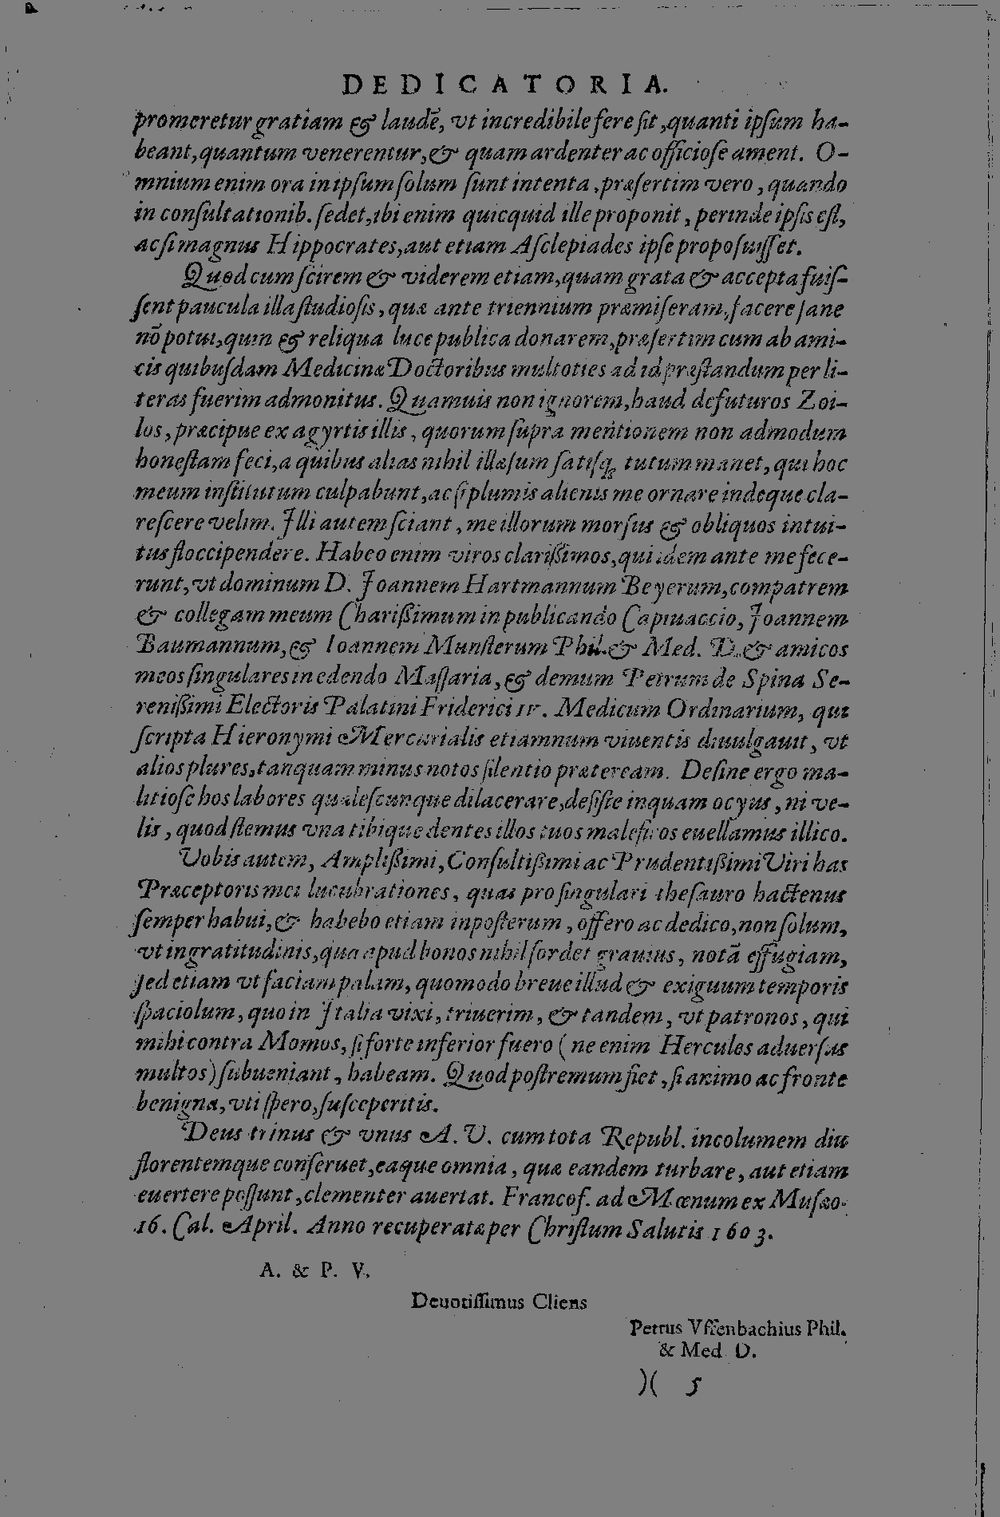 DEDICATORIA.
promeretur gratiam & laudẽ, vt incredibile fere ſit, quanti ipſum ha-
beant, quantum venerentur, & quam ardenter ac officioſe ament. O-
mnium enim ora in ipſum ſolum ſunt intenta, præſertim vero, quando
in conſultationib. ſedet, ibi enim quicquid ille proponit, perinde ipſis eſt,
ac ſi magnus Hippocrates, aut etiam Aſclepiades ipſe propoſuiſſet.
Quod cum ſcirem & viderem etiam, quam grata & accepta fuiſ-
ſent paucula illa ſtudioſis, quæ ante triennium præmiſeram, facere ſane
nõ potui, quin & reliqua luce publica donarem, præſertim cum ab ami-
cis quibuſdam Medicinæ Doctoribus multoties ad id præſtandum per li-
teras fuerim admonitus. Quamuis non ignorem, haud defuturos Zoi-
los, præcipue ex agyrtis illis, quorum ſupra mentionem non admodum
honeſtam feci, a quibus alias nihil illæſum ſatiſq; tutum manet, qui hoc
meum inſtitutum culpabunt, ac ſi plumis alienis me ornare indeque cla-
reſcere velim. Illi autem ſciant, me illorum morſus & obliquos intui-
tus floccipendere. Habeo enim viros clarißimos, qui idem ante me fece-
runt, vt dominum D. Joannem Hartmannum Beyerum, compatrem
& collegam meum Charißimum in publicando Capiuaccio, Joannem
Baumannum, & Ioannem Munſterum Phil. & Med. D. & amicos
meos ſingulares in edendo Maſſaria, & demum Petrum de Spina Se-
renißimi Electoris Palatini Friderici IV. Medicum Ordinarium, qui
ſcripta Hieronymi Mercurialis etiamnum viuentis diuulgauit, vt
alios plures, tanquam minus notos ſilentio præteream. Deſine ergo ma-
litioſe hos labores qualeſcunque dilacerare, deſiſte inquam ocyus, ni ve-
lis, quod ſtemus vna tibique dentes illos tuos maleficos euellamus illico.
Vobis autem, Amplißimi, Conſultißimi ac Prudentißimi Viri has
Præceptoris mei lucubrationes, quas pro ſingulari theſauro hactenus
ſemper habui, & habebo etiam inpoſterum, offero ac dedico, non ſolum,
vt ingratitudinis, qua apud bonos nihil ſordet grauius, notã effugiam,
ſed etiam vt faciam palam, quomodo breue illud & exiguum temporis
ſpaciolum, quo in Italia vixi, triuerim, & tandem, vt patronos, qui
mihi contra Momos, ſi forte inferior fuero (ne enim Hercules aduerſus
multos) ſubueniant, habeam. Quod poſtremum fiet, ſi animo ac fronte
benigna, vti ſpero, ſuſceperitis.
Deus trinus & vnus A. V. cum tota Republ. incolumem diu
florentemque conſeruet, eaque omnia, quæ eandem turbare, aut etiam
euertere poſſunt, clementer auertat. Francof. ad Mœnum ex Muſæo.
16. Cal. April. Anno recuperatæ per Chriſtum Salutis 1603.
A. & P. V.
Deuotiſſimus Cliens
Petrus Vffenbachius Phil.
& Med D.
)( 5